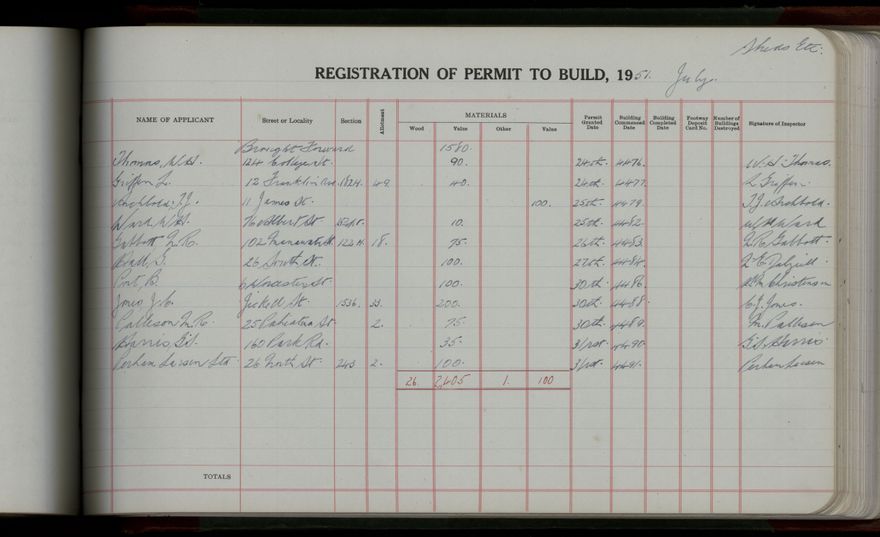 Sheds Etc.
REGISTRATION OF PERMIT TO BUILD, 1951. July.
NAME OF APPLICANT Street or Locality Section Allotment MATERIALS Wood Value Other Value Permit Granted Date Building Commenced Date Building Completed Date Footway Deposit Card No. Number of Buildings Destroyed Signature of Inspector
Brought Forward 1580.
Thomas, W.H. 124 College St. 90. 24th. 4476. W. H. Thomas.
Griffen L. 12 Franklin 1824. 49. 40. 24th. 4477. L Griffen.
Archbold, T.J. 11 James St. 100. 25th. 4479. T.J. Archbold.
Ward W.H. 76 Albert St 10. 25th. 4482. W H Ward
102 18. 75. 26th. 4483.
26 South St. 100. 27th. 4484.
Port, B. 6 Worcester St. 100. 30th. 4486. Christensen
Jones J. Jickell St. 1536. 33. 200. 30th. 4488. Jones.
Patteson 25 St. 2. 75. 30th. 4489. Patteson
Harris G.S. 160 Park Rd. 35. 31st. 4490. G.S. Harris.
Larsen Ltd 26 North St. 243 2. 100. 31st. 4491. Larsen
26 2,405 1. 100
TOTALS